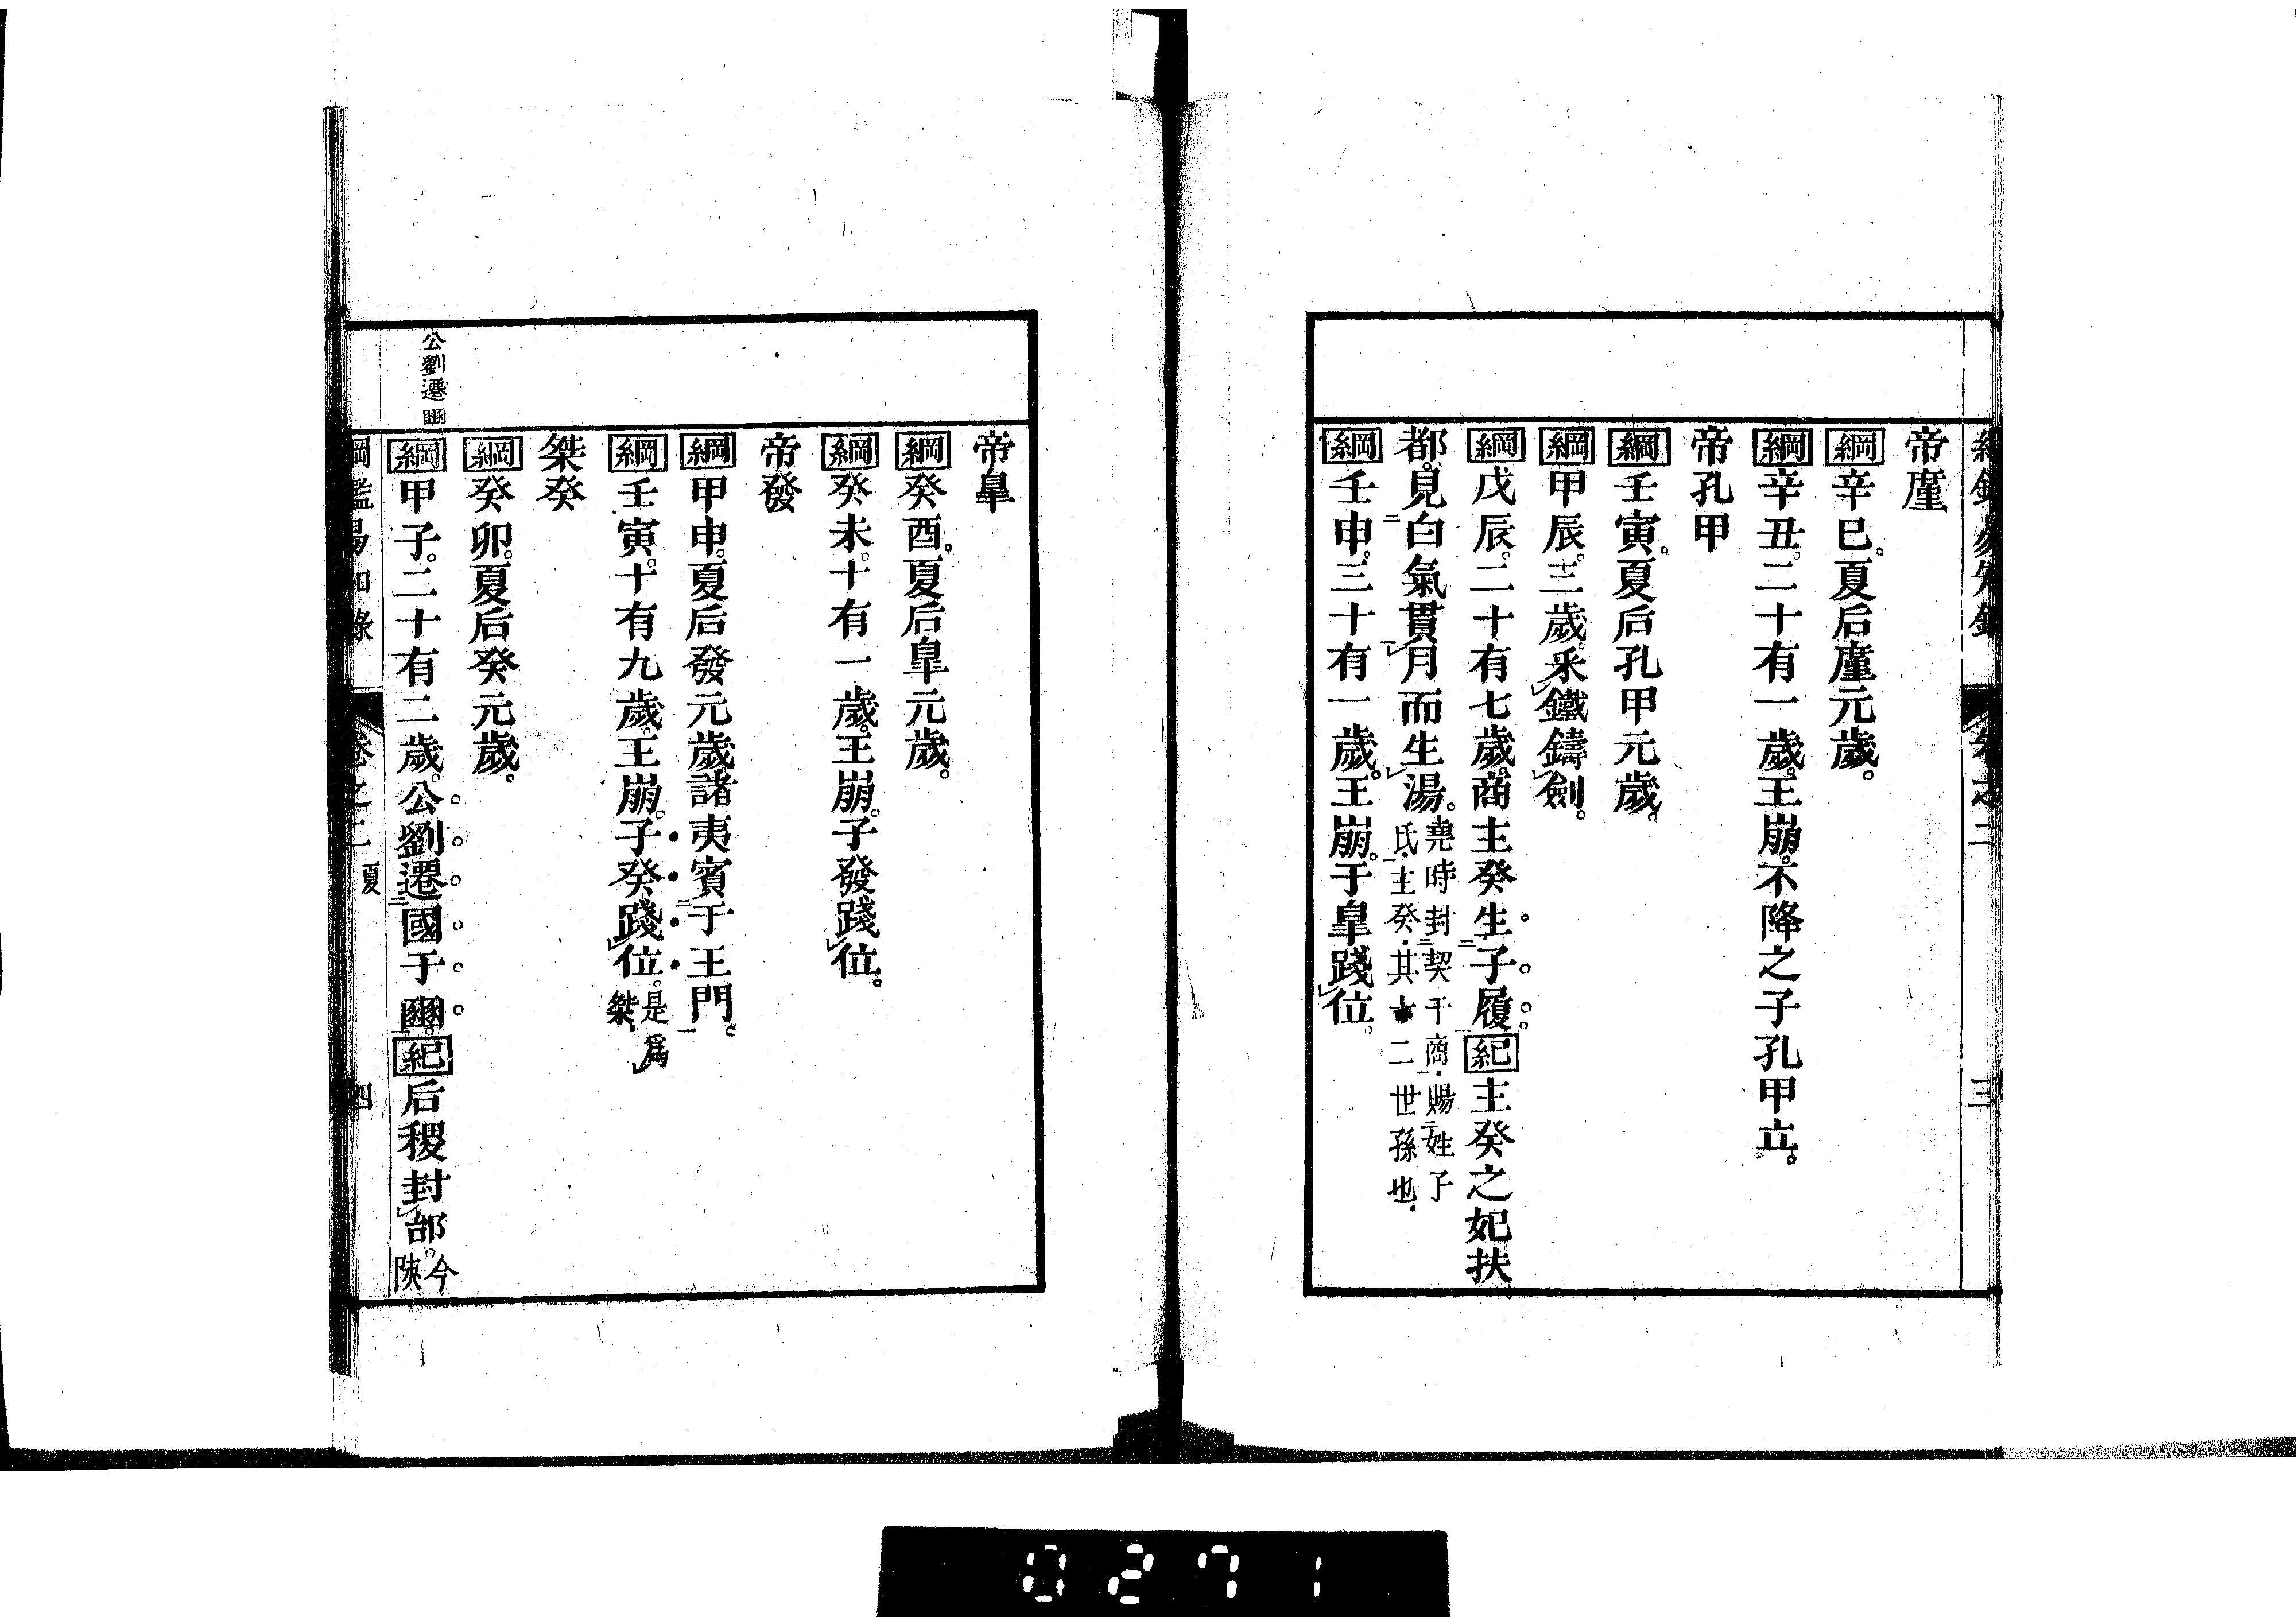 帝廑
綱辛巳。夏后廑元歲。
綱辛丑。二十有一歲。王崩。不降之子孔甲立。
帝孔甲
綱壬寅。夏后孔甲元歲。
綱甲辰。三歲。采鐵鑄劍。
綱戊辰。二十有七歲。商主癸生子履。紀主癸之妃扶
都。見白氣貫月而生湯。堯時封契于商・賜姓子
氏・主癸・其十二世孫也・
綱壬申。三十有一歲。王崩。子皐踐位。
帝皐
綱癸酉。夏后皐元歲。
綱癸未。十有一歲。王崩。子發踐位。
帝發
綱甲申。夏后發元歲。諸夷賓于王門。
綱壬寅。十有九歲。王崩。子癸踐位。是爲
桀・
桀癸
綱癸卯。夏后癸元歲。
公劉遷豳
綱甲子。二十有二歲。公劉遷國于豳。紀后稷封邰。今
陝
綱鑑易知錄 卷之二 夏 四
0271